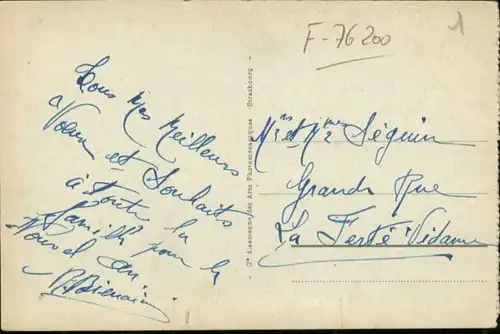 F-76200
1
Tous mes meilleurs
Voeux et Souhaits
à toute la
famille pour le
Nouvel an
Mrs et Mme Séguin
Grande Rue
La Ferté Vidame
des Arts Photomécaniques - Strasbourg